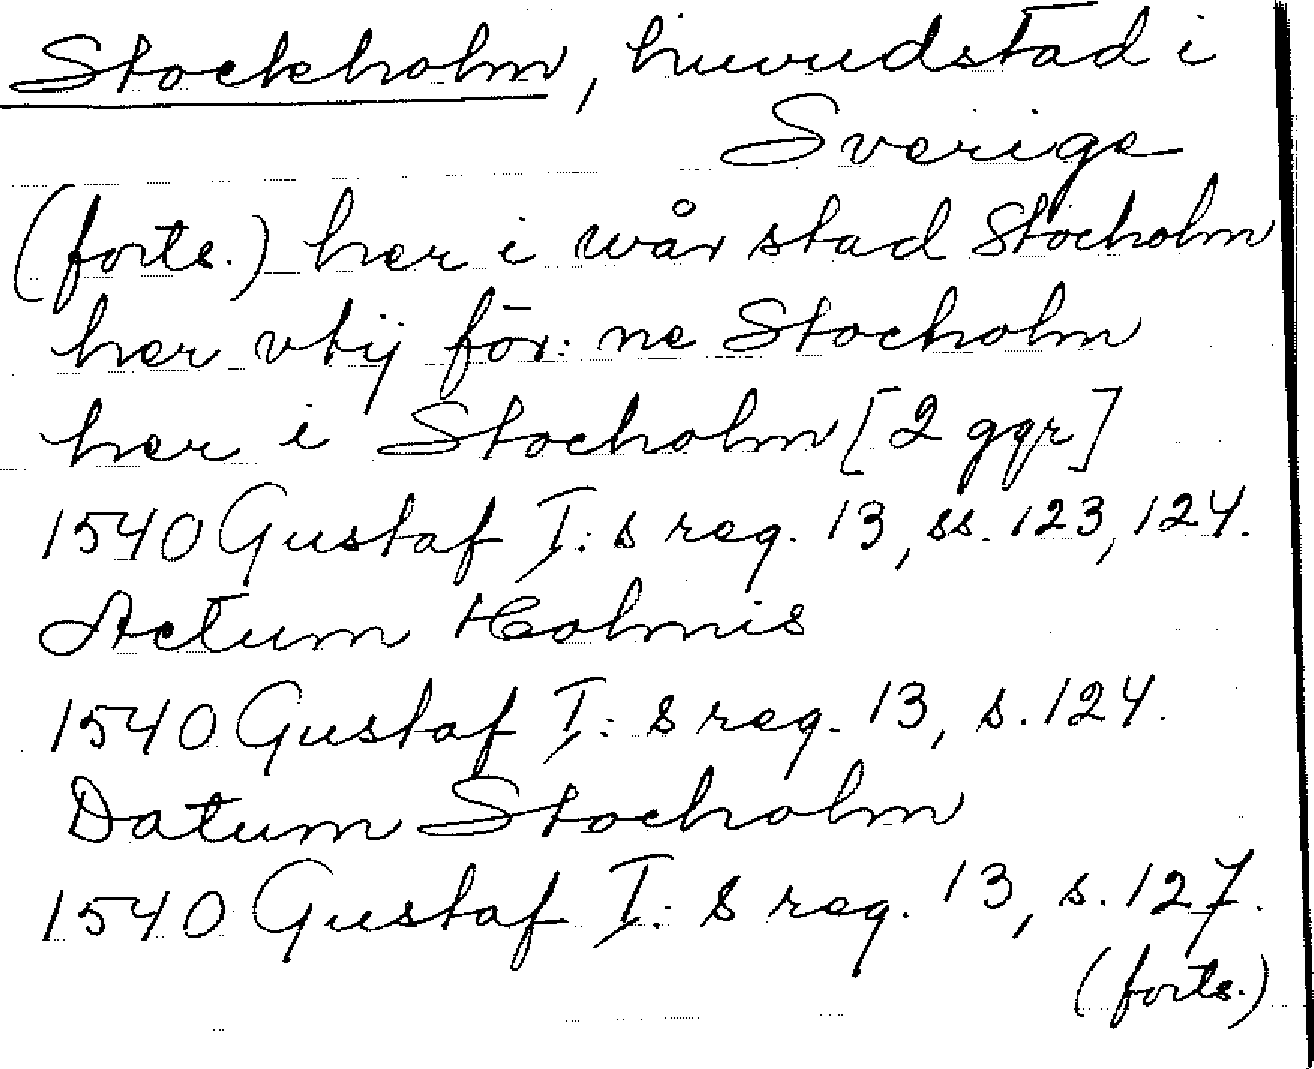 Stockholm, huvudstad i
Sverige
(forts.) her i wår stad Stocholm
her vtij för: ne Stocholm
her i Stocholm [2 ggr]
1540 Gustaf I: s reg. 13, ss. 123, 124.
Actum Holmis
1540 Gustaf I: s reg. 13, s. 124.
Datum Stocholm
1540 Gustaf I: s reg. 13, s. 127.
(forts.)